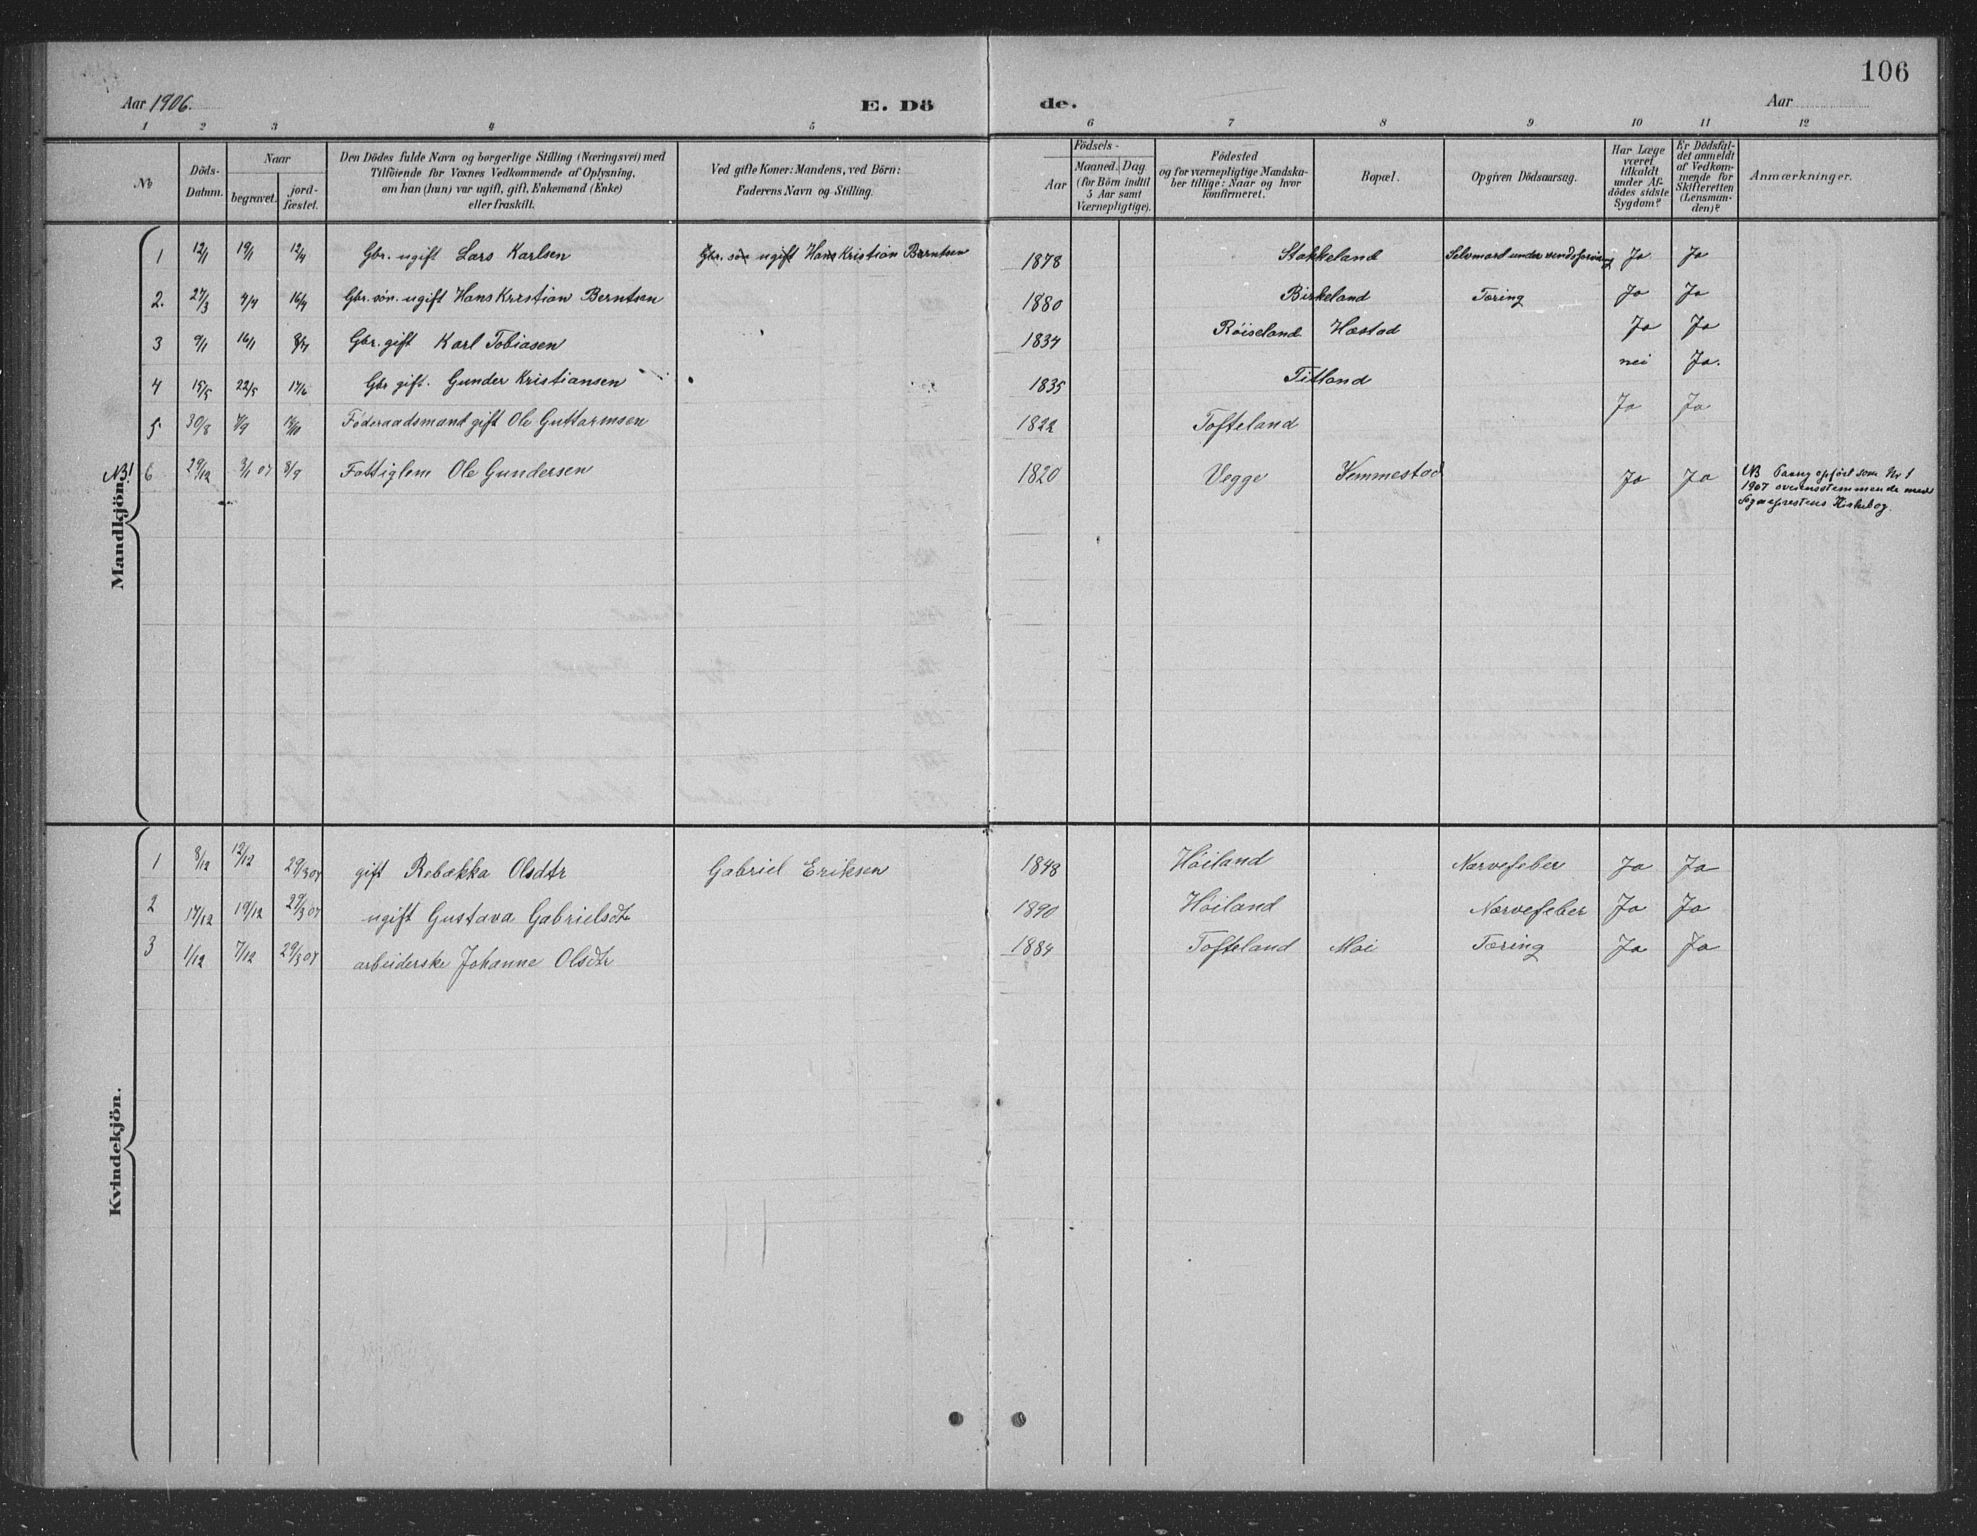 106
Aar 1906. E. Dö de. Aar
1 2 3 4 5 6 7 8 9 10 11 12
No
Döds-Datum.
Naar
begravet.
jord-fæstet.
Den Dödes fulde Navn og borgerlige Stilling (Næringsvei) med
Tilföiende for Voxnes Vedkommende af Oplysning,
om han (hun) var ugift, gift, Enkemand (Enke)
eller fraskilt.
Ved gifte Koner: Mandens, ved Börn:
Faderens Navn og Stilling.
Födsels-
Aar
Maaned. Dag
(for Börn indtil
5 Aar samt
Værnepligtige).
Födested
og for værnepligtige Mandska-
ber tillige: Naar og hvor
konfirmeret.
Bopæl.
Opgiven Dödsaarsag.
Har Læge
været
tilkaldt
under Af-
dödes sidste
Sygdom?
Er Dödsfal-
det anmeldt
af Vedkom-
mende for
Skifteretten
(Lensman-
den)?
Anmærkninger.
Mandkjön.
1 12/1 19/1 12/4 Gbr. ugift Lars Karlsen Gbr. søn ugift Hans Kristian Berntsen 1878 Stakkeland Selvmord under Ja Ja
2. 27/3 4/4 16/4 Gbr. søn. ugift Hans Kristian Berntsen 1880 Birkeland Tæring Ja Ja
3 9/1 16/1 Gbr. gift Karl Tobiasen 1834 Röiseland Hæstad Ja Ja
4 15/5 22/5 17/6 Gbr gift. Gunder Kristiansen 1835 Titland nei Ja.
5 30/8 7/9 Föderaadsmand gift Ole Guttormsen 1822 Tofteland Ja Ja
NB! 6 29/12 3/1 07 8/9 Fattiglem Ole Gundersen 1820 Vegge Kemmestad Ja Ja NB opført som Nr 1
1907 overensstemmende med
Sogneprestens Kirkebog.
Kvindekjön.
1 8/12 12/12 29/3 07 gift Rebækka Olsdtr Gabriel Eriksen 1848 Höiland Nervefeber Ja Ja
2 14/12 19/12 29/3 07 ugift Gustava Gabrielsdtr 1890 Höiland Nervefeber Ja Ja
3 1/12 7/12 29/3 07 arbeiderske Johanne Olsdtr 1884 Tofteland Moi Tæring Ja Ja